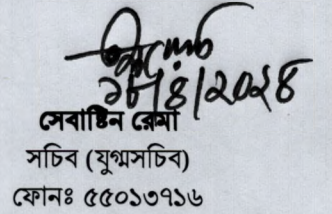 ১৮/৪/২০২৪
সেবাষ্টিন রেমা
সচিব (যুগ্মসচিব)
ফোনঃ ৫৫০১৩৭১৬